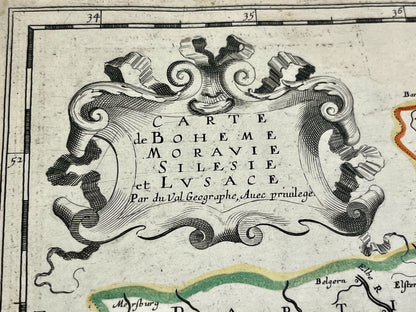 34 35 36
Bar
CARTE
de BOHEME
MORAVIE
SILESIE
et LVSACE
Par du Val Geographe, Avec privilege.
52
Elbe R.
Belgern
Elster
Mersburg
P A R T I